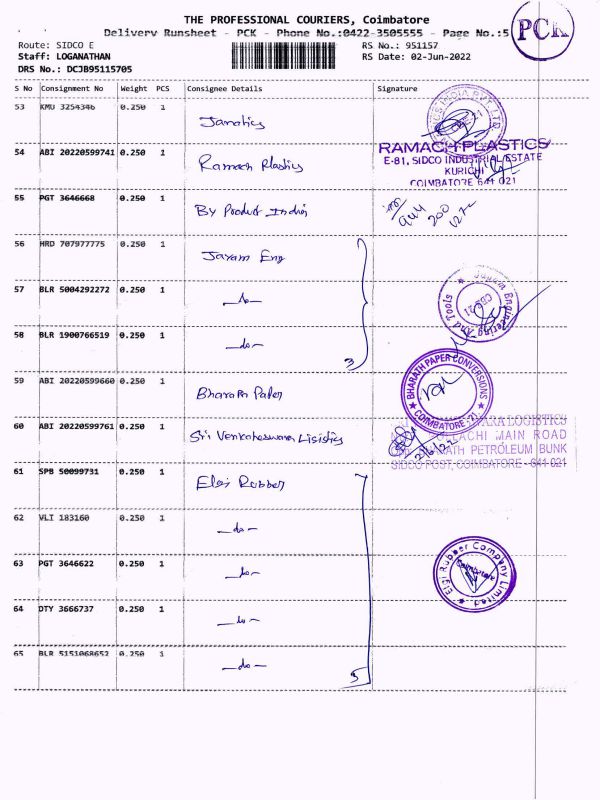 THE PROFESSIONAL COURIERS, Coimbatore
Delivery Runsheet - PCK - Phone No.:0422-3505555 - Page No.:5
PCK
Route: SIDCO E
RS No.: 951157
Staff: LOGANATHAN
RS Date: 02-Jun-2022
DRS No.: DCJB95115705
S No Consignment No Weight PCS Consignee Details Signature
53 KMU 3254346 0.250 1
54 ABI 20220599741 0.250 1 Ramach Plastics
RAMACH PLASTICS
E-81, SIDCO INDUSTRIAL ESTATE
KURICHI
COIMBATORE 641 021
55 PGT 3646668 0.250 1 By Product India
56 HRD 707977775 0.250 1 Jayam Eng
57 BLR 5004292272 0.250 1 -do-
Jayam Engineering And Tools
CBE-21
58 BLR 1900766519 0.250 1 -do-
3
59 ABI 20220599660 0.250 1 Bharath Paper
BHARATH PAPER CONVERSIONS
COIMBATORE-21
60 ABI 20220599761 0.250 1 Sri Venkateswara
LOGISTICS
MAIN ROAD
PETROLEUM BUNK
SIDCO POST, COIMBATORE - 641 021
2/6/22
61 SPB 50099731 0.250 1 Elgi Rubber
62 VLI 183160 0.250 1 -do-
63 PGT 3646622 0.250 1 -do-
Elgi Rubber Company Limited
Coimbatore
64 DTY 3666737 0.250 1 -do-
65 BLR 5151068652 0.250 1 -do-
5